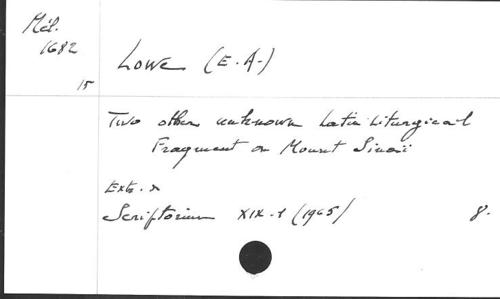 Mél.
1682
15
Lowe (E.A.)
Two other unknown Latin Liturgical
Fragment on Mount Sinaii
Extr.
Scriptorium XIX-1 (1965)
8.